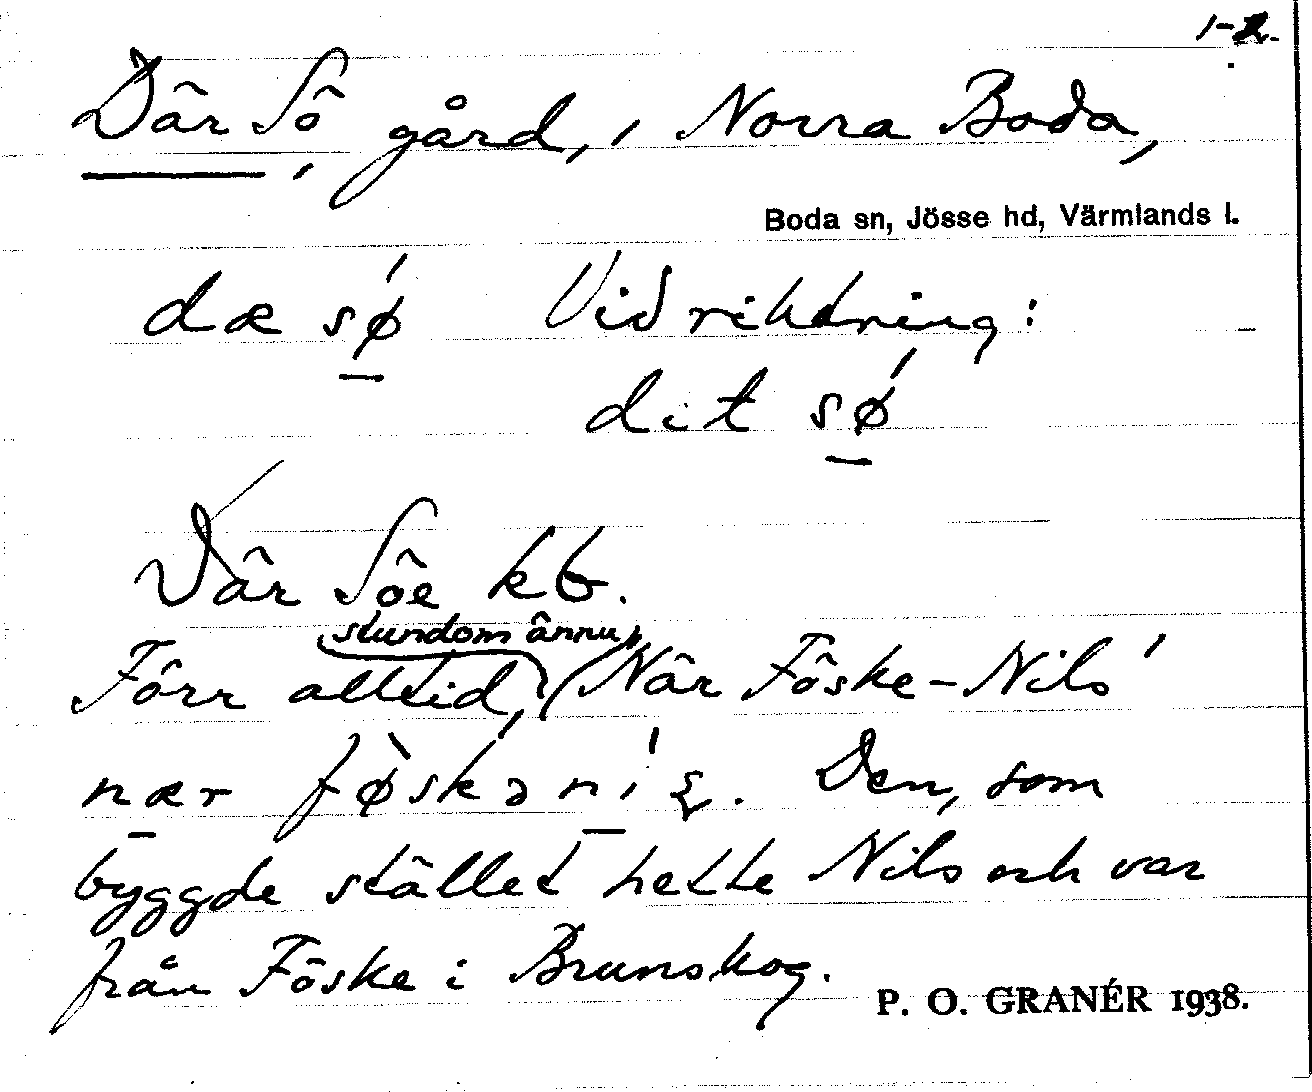 1-2.
Där Sö, gård, i Norra Boda,
Boda sn, Jösse hd, Värmlands l.
dæ sǿ Vid riktning:
dit sǿ
Där Söe kb.
(stundom ännu)
Förr alltid, När Föske-Nils
nær fø̀skəníʂ. Den, som
byggde stället hette Nils och var
från Föske i Brunskog.
P. O. GRANÉR 1938.